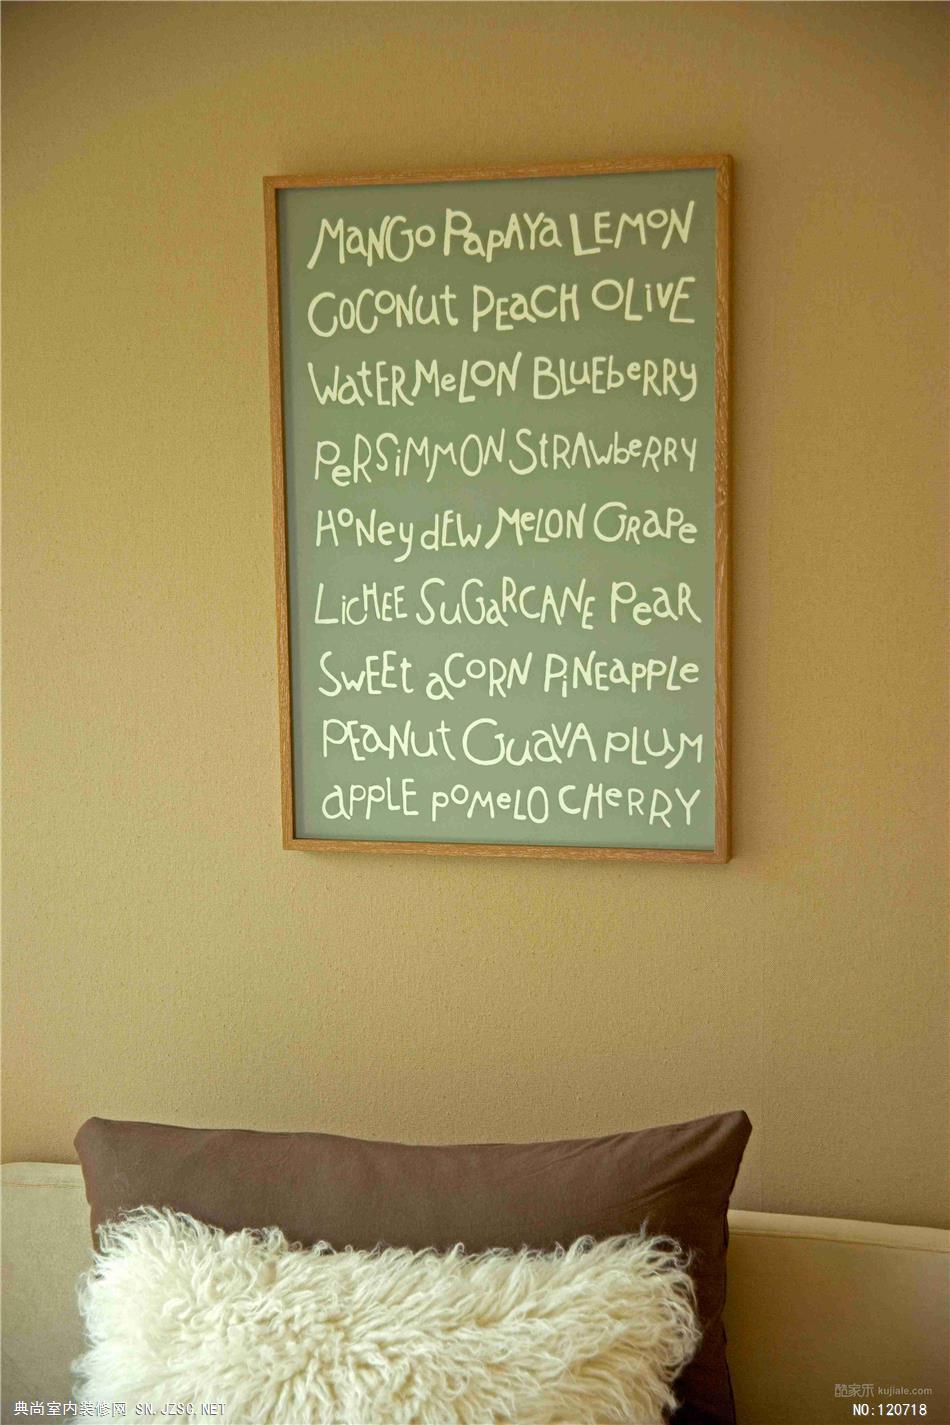 MaNGo PapAYa LEMoN
COCONut PEaCH OLiVE
WatERMeLON BLuEbeRRy
PeRSiMMON StRAwbeRRY
HoNey dEW MeLON GRaPe
LicHEE SuGaRCANE PeaR
SwEEt aCORN PiNEapple
PEaNut GuaVA pLUM
apPLE poMeLO CHeRRY
酷家乐 kujiale.com
典尚室内装修网 SN.JZSC.NET
NO:120718